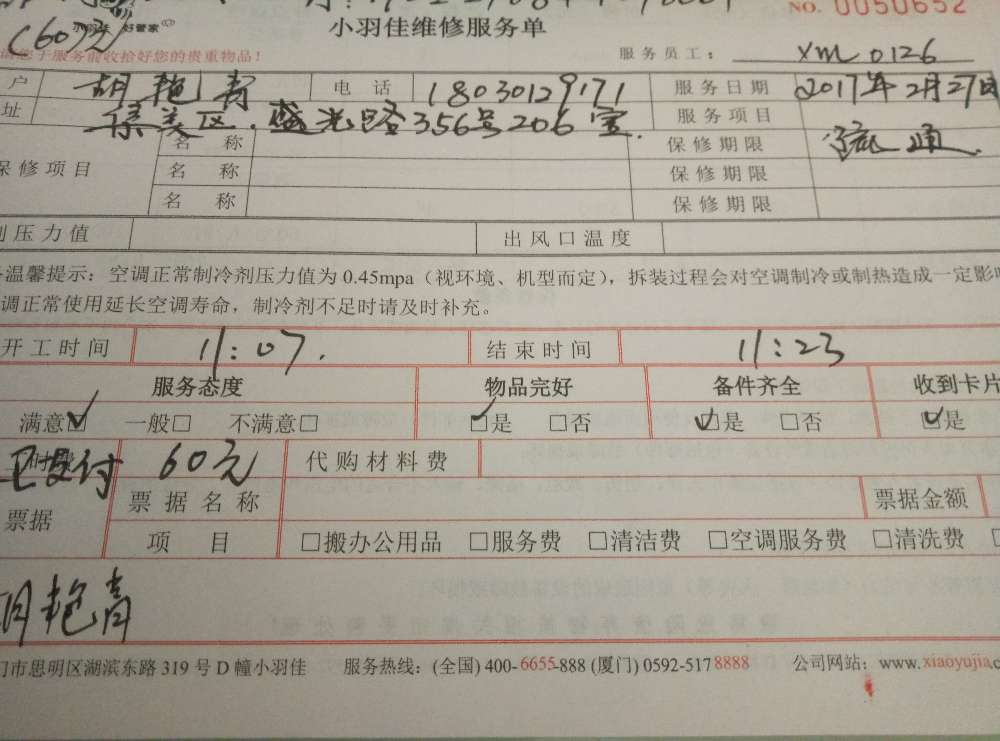 NO. 0050652
(60)元 小羽佳 好管家 小羽佳维修服务单
您于服务前收拾好您的贵重物品! 服务员工: xm 0126
户 胡艳青 电话 18030129171 服务日期 2017年2月27日
址 集美区.盛光路356号206室. 服务项目
名称 保修期限 疏通
保修项目 名称 保修期限
名称 保修期限
压力值 出风口温度
温馨提示:空调正常制冷剂压力值为0.45mpa(视环境、机型而定),拆装过程会对空调制冷或制热造成一定影
调正常使用延长空调寿命,制冷剂不足时请及时补充。
开工时间 11:07. 结束时间 11:23
服务态度 物品完好 备件齐全 收到卡片
满意☑ 一般□ 不满意□ ☑是 □否 ☑是 □否 ☑是
已支付 60元 代购材料费
票据 票据名称 票据金额
项目 □搬办公用品 □服务费 □清洁费 □空调服务费 □清洗费
胡艳青
门市思明区湖滨东路319号D幢小羽佳 服务热线:(全国)400-6655-888 (厦门)0592-5178888 公司网站:www.xiaoyujia.c